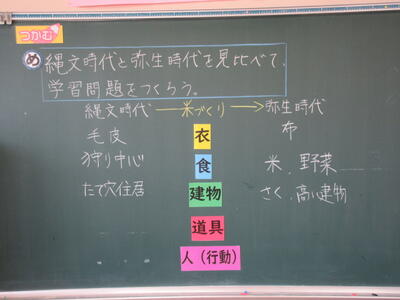 つかむ
め 縄文時代と弥生時代を見比べて、
学習問題をつくろう。
縄文時代 ― 米づくり → 弥生時代
毛皮 衣 布
狩り中心 食 米、野菜
たて穴住居 建物 さく、高い建物
道具
人（行動）